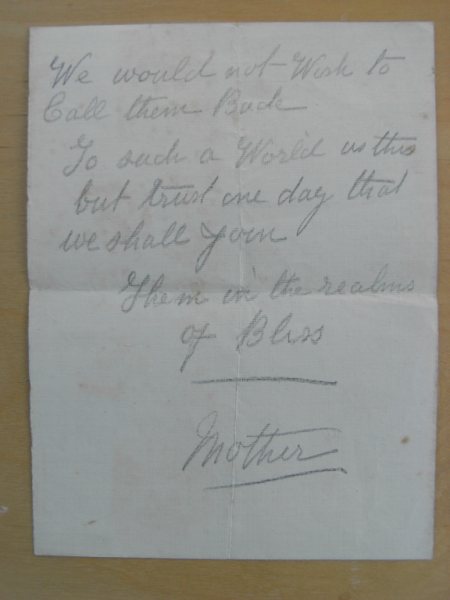 We would not Wish to
Call them Back
To such a World as this
but trust one day that
we shall Join
Them in the realms
of Bliss
Mother